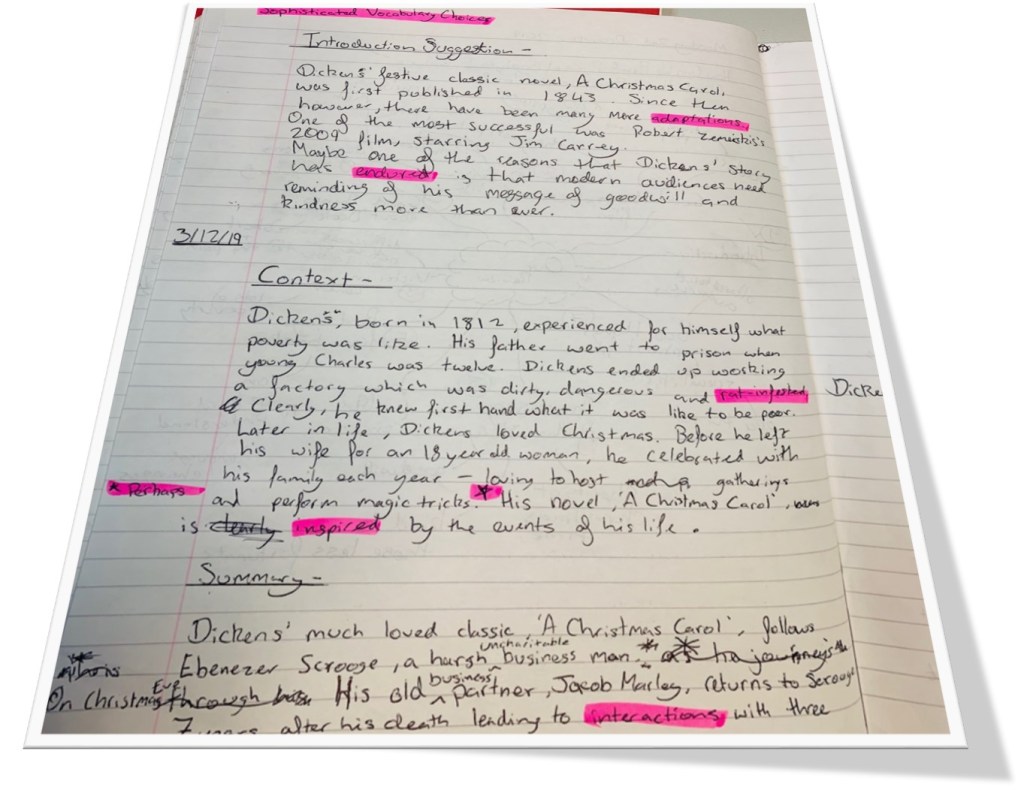 Sophisticated Vocabulary Choices
Introduction Suggestion -
Dickens' festive classic novel, A Christmas Carol,
was first published in 1843. Since then
however, there have been many more adaptations.
One of the most successful was Robert Zemeskis's
2009 film, starring Jim Carrey.
Maybe one of the reasons that Dickens' story
has endured is that modern audiences need
reminding of his message of goodwill and
kindness more than ever.
3/12/19
Context -
Dickens, born in 1812, experienced for himself what
poverty was like. His father went to prison when
young Charles was twelve. Dickens ended up working
a factory which was dirty, dangerous and rat-infested
Dicke
Clearly, he knew first hand what it was like to be poor.
Later in life, Dickens loved Christmas. Before he left
his wife for an 18 year old woman, he celebrated with
his family each year - loving to host gatherings
* Perhaps
and perform magic tricks. * His novel, 'A Christmas Carol',
is clearly inspired by the events of his life.
Summary -
Dickens' much loved classic, 'A Christmas Carol', follows
uncharitable
Ebenezer Scrooge, a harsh business man.
On Christmas Eve through His old business partner, Jacob Marley, returns to Scrooge
7 years after his death leading to interactions with three